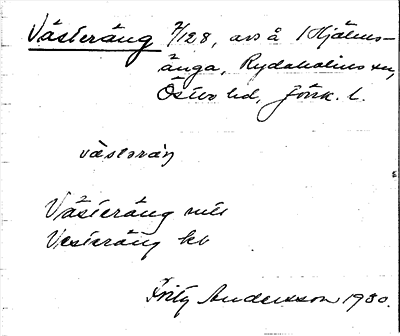 Västeräng 7/128, avs å Hjälms-
änga, Rydaholms sn,
Östbo hd, Jönk. l.
västäräŋ
Västeräng
Vesteräng kb
Fritz Andersson 1930.